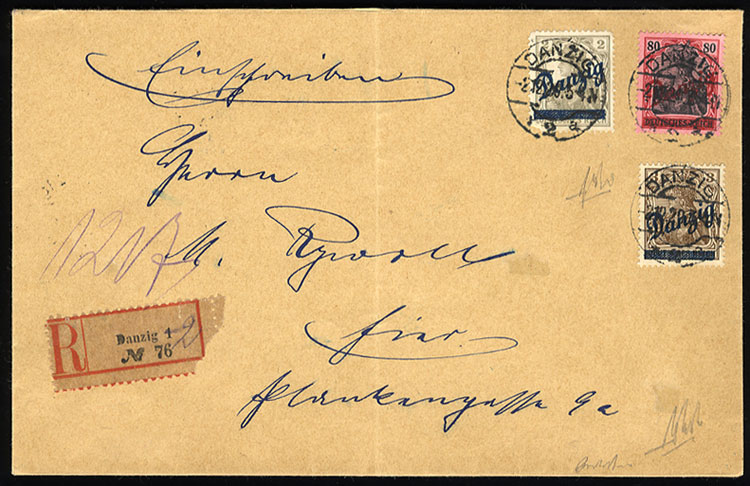 Einschreiben
Herrn
M. Rywoll
hier.
Plankengasse 9a
R
Danzig 1
№ 76
2
Danzig
DANZIG
2
80 80
DEUTSCHES REICH
DANZIG
3
Danzig
DANZIG